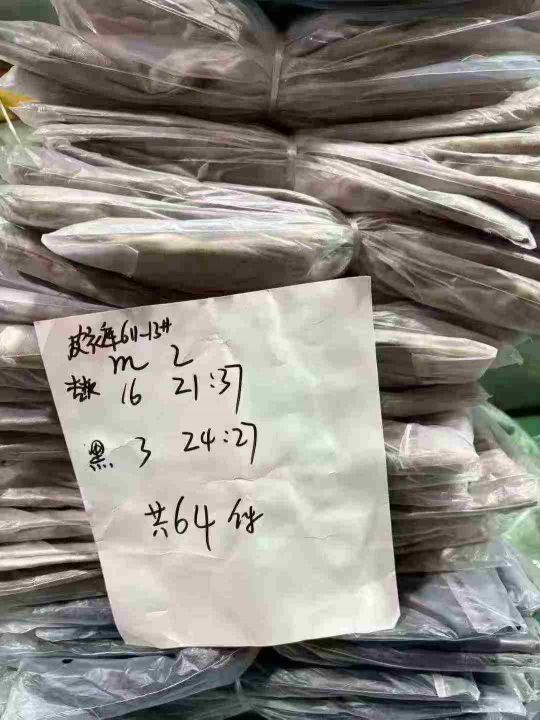 皮衣库611-13#
M L
16 21:37
黑 3 24:27
共64件